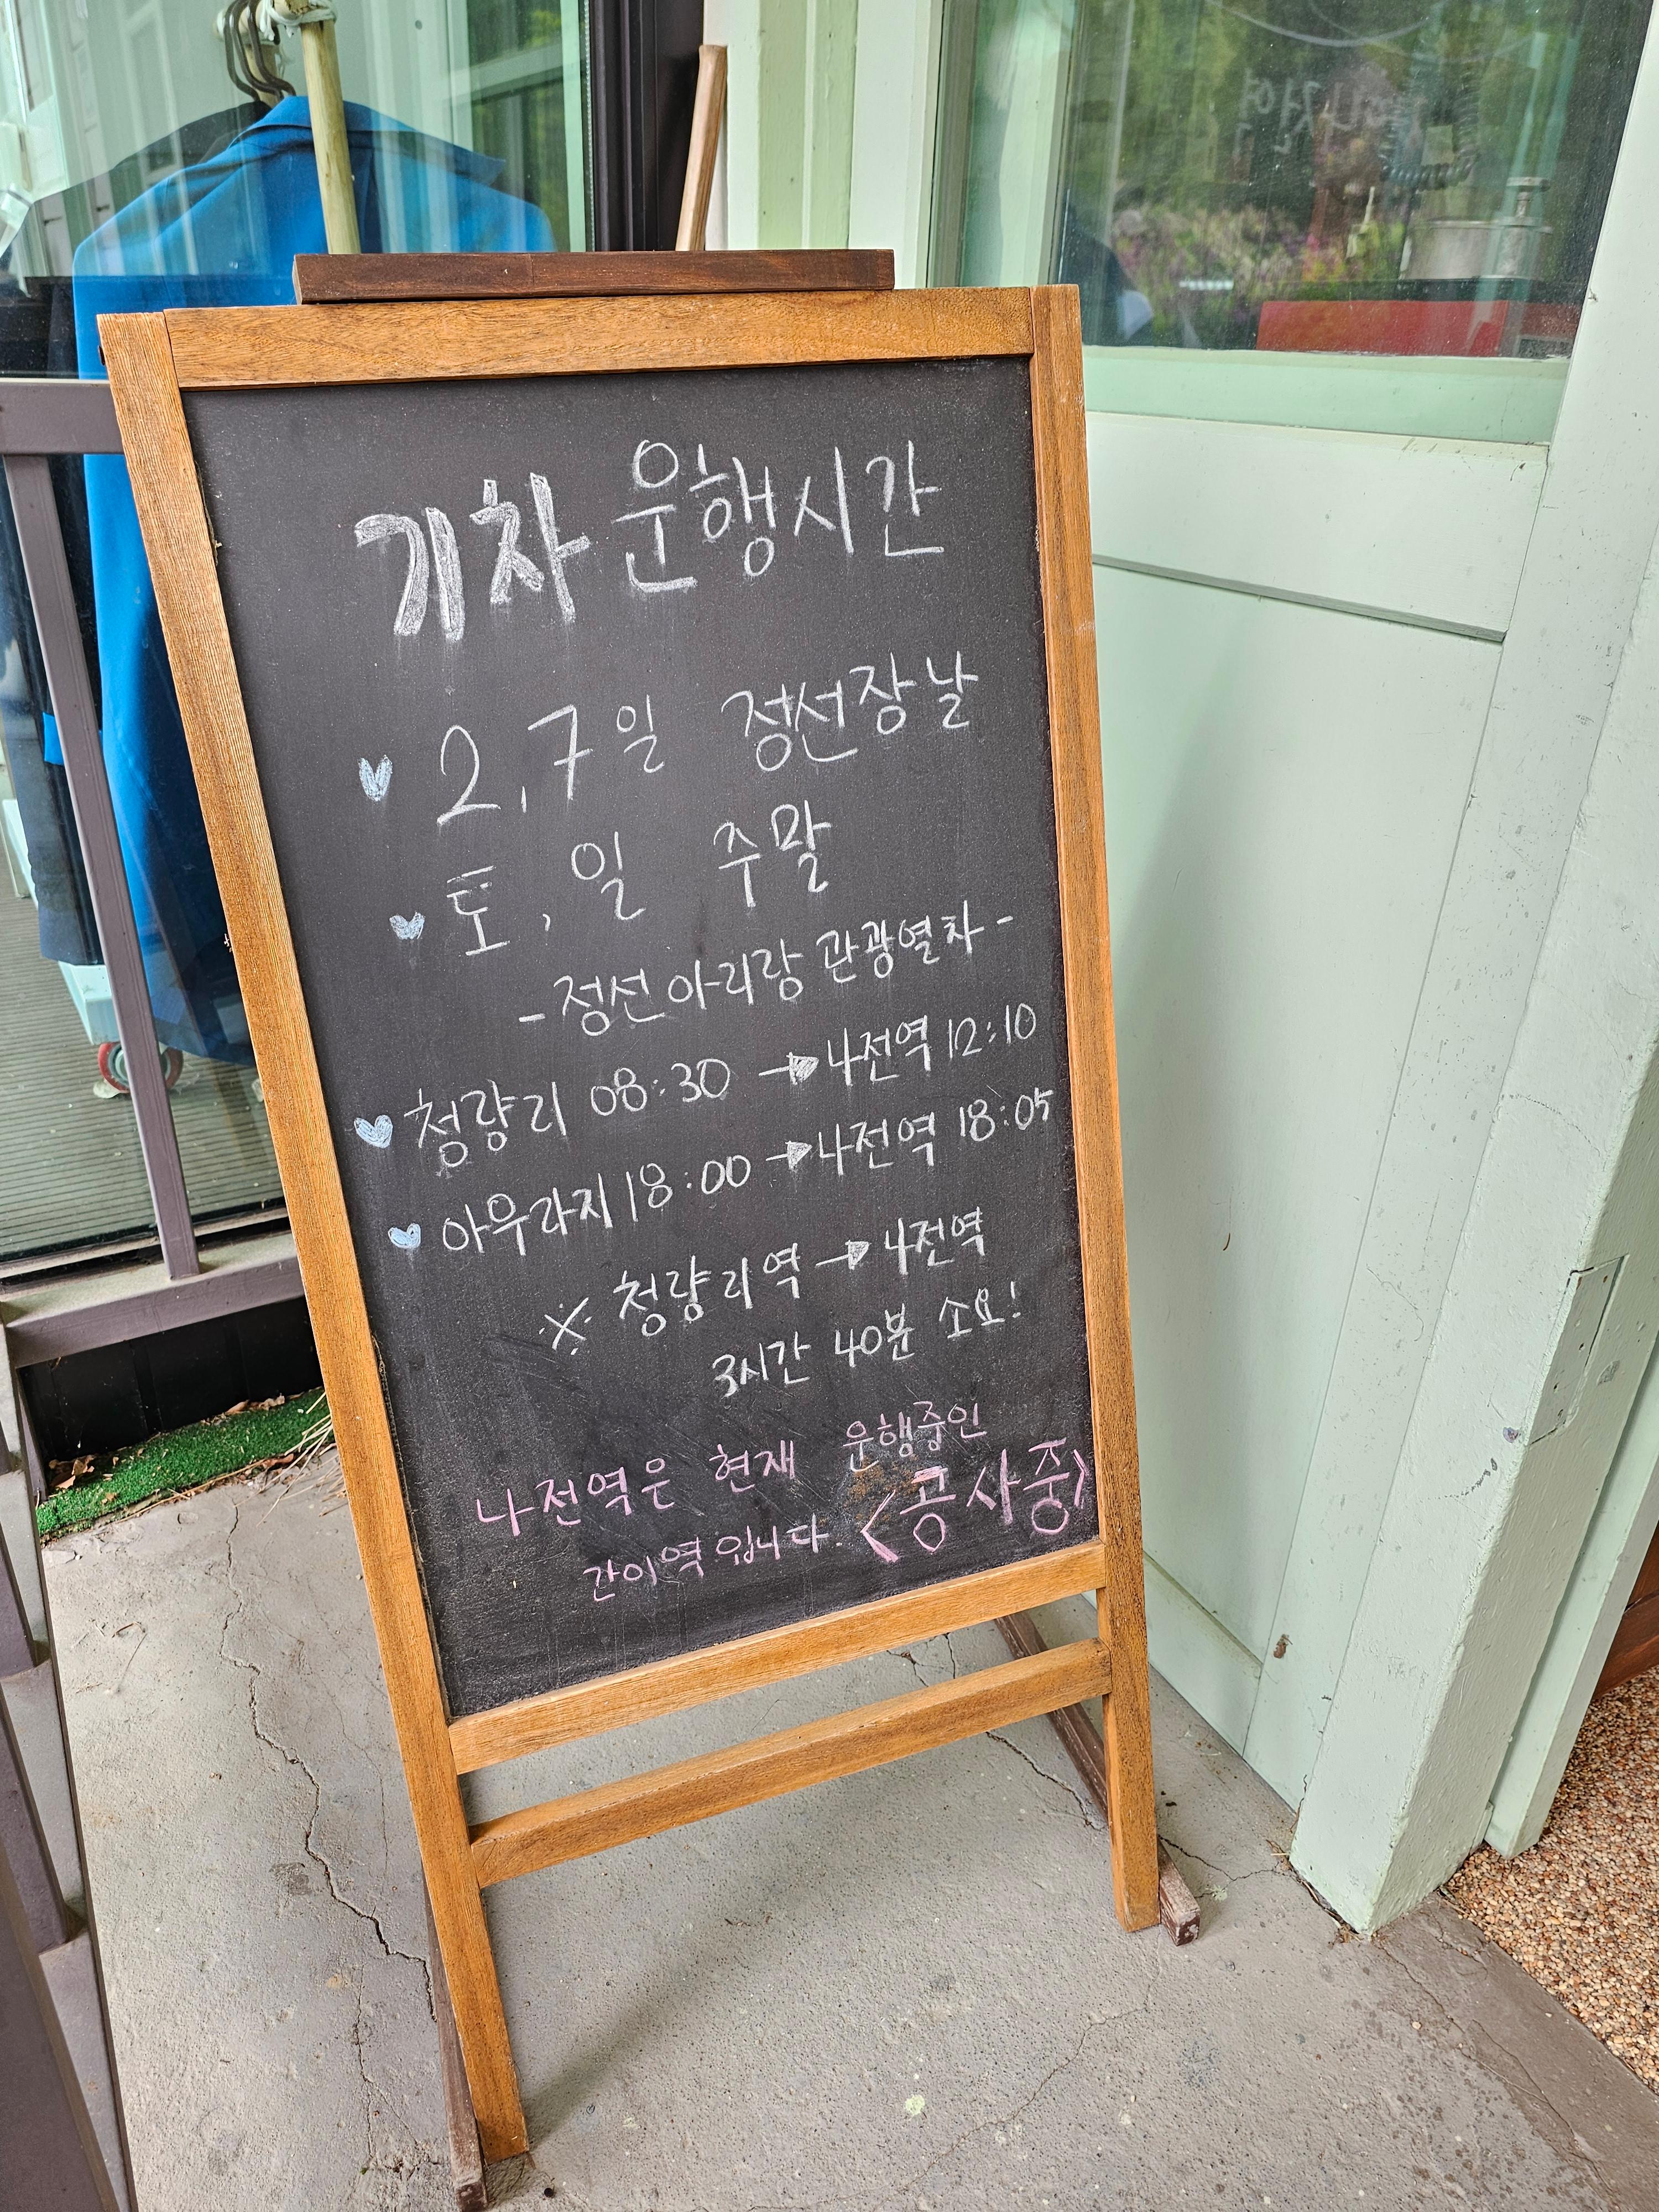 기차 운행시간
♥ 2, 7일 정선장날
♥ 토, 일 주말
- 정선아리랑 관광열차 -
♥ 청량리 08:30 → 나전역 12:10
♥ 아우라지 18:00 → 나전역 18:05
※ 청량리역 → 나전역
3시간 40분 소요!
나전역은 현재 운행중인
간이역입니다. <공사중>